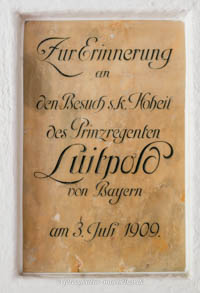 Zur Erinnerung
an
den Besuch s.k. Hoheit
des Prinzregenten
Luitpold
von Bayern
am 3. Juli 1909.